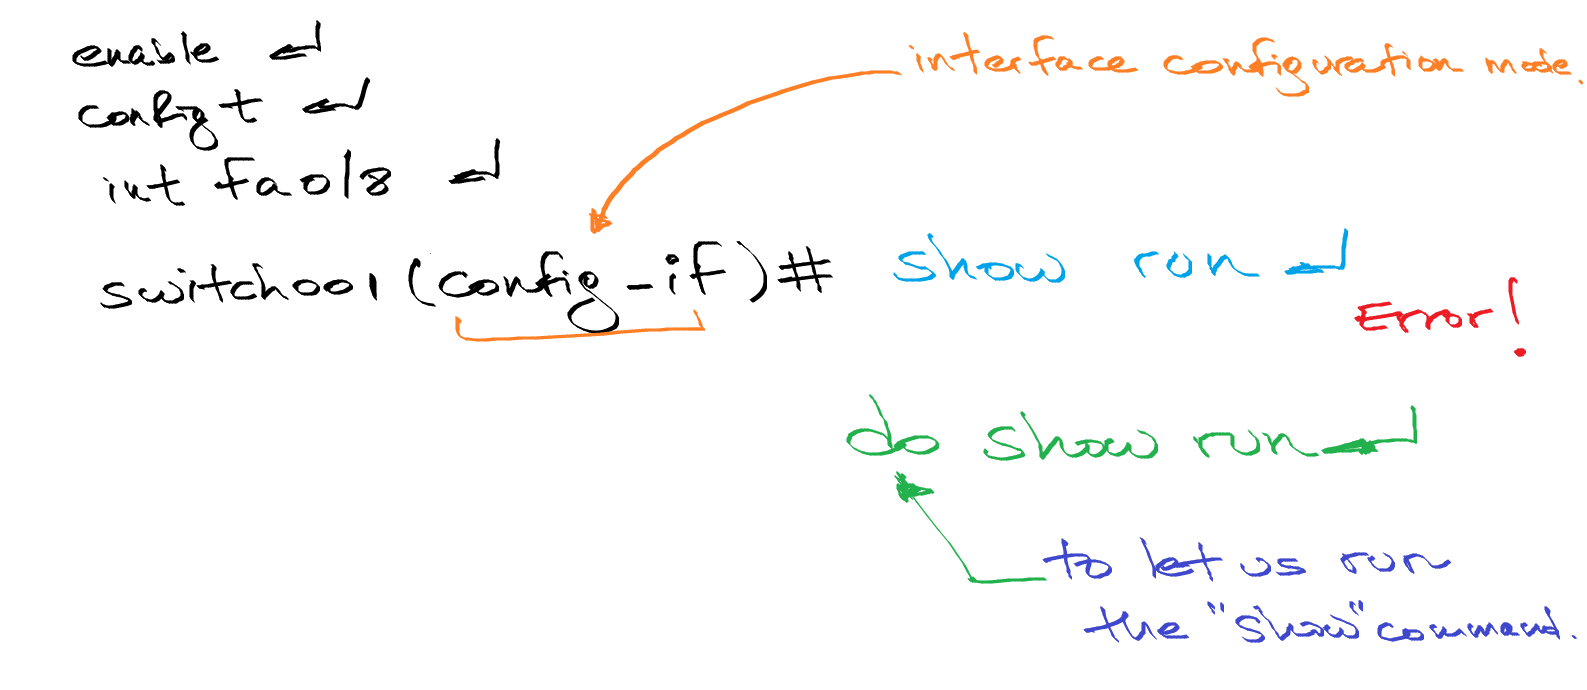 enable ↵
config t ↵
int fa0/8 ↵
interface configuration mode.
switch001(config-if)# show run ↵
Error!
do show run ↵
to let us run
the "show" command.